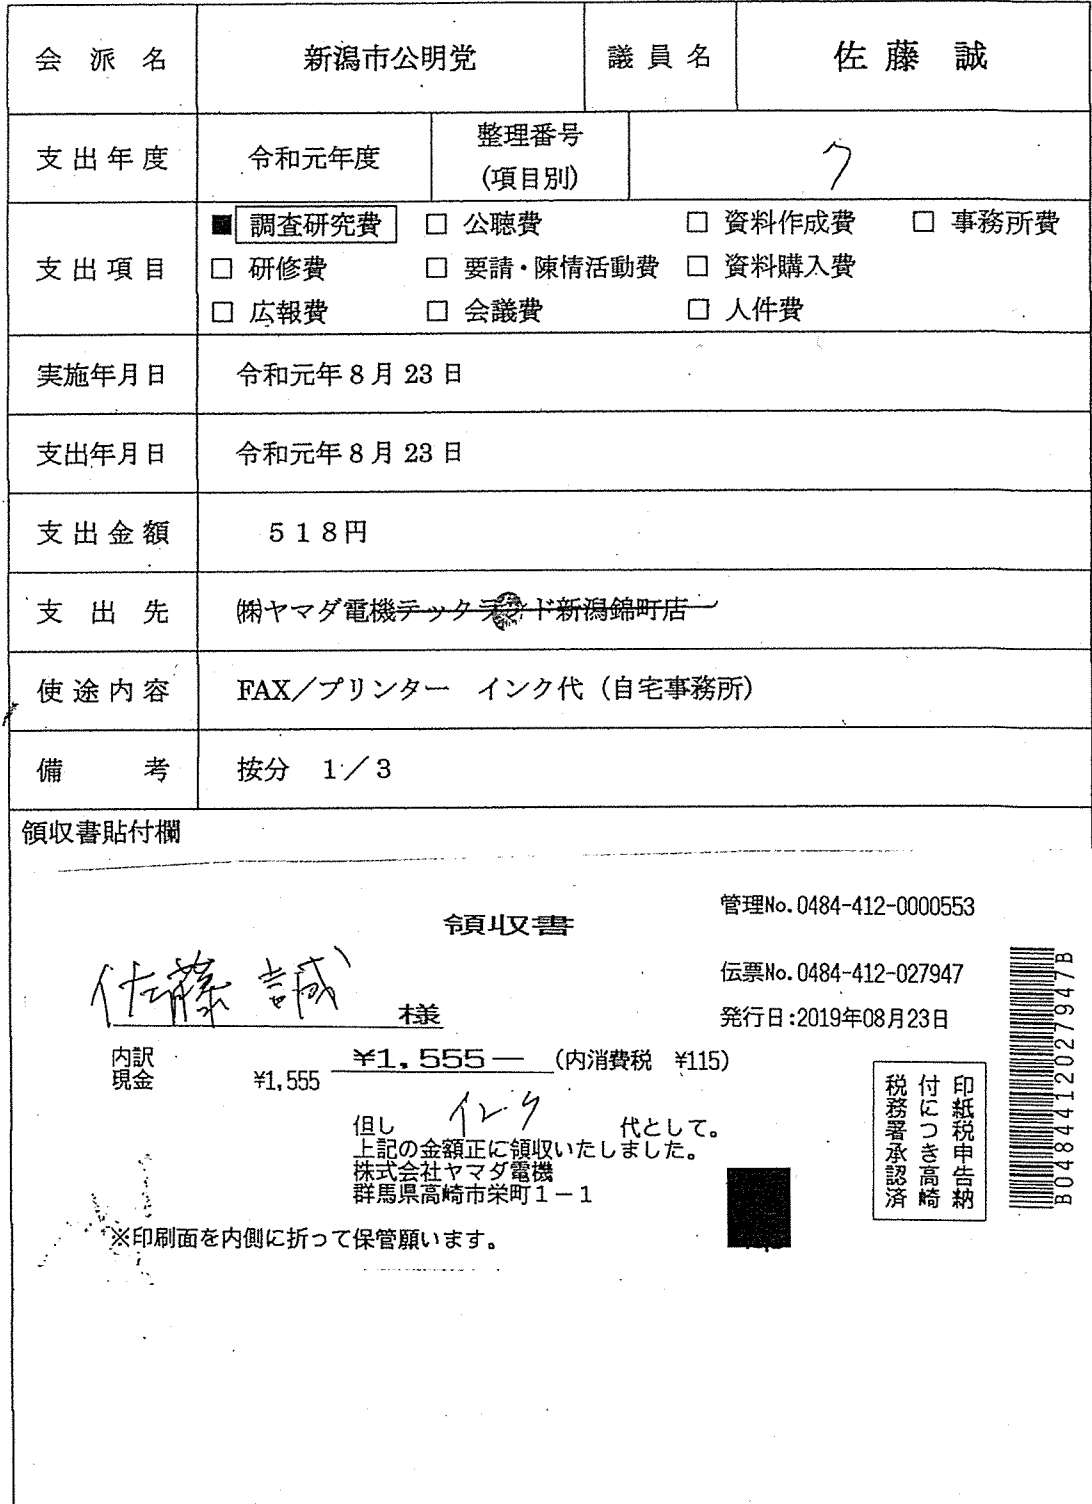 会派名 新潟市公明党 議員名 佐藤 誠
支出年度 令和元年度 整理番号(項目別) 7
支出項目
■ 調査研究費 □ 公聴費 □ 資料作成費 □ 事務所費
□ 研修費 □ 要請・陳情活動費 □ 資料購入費
□ 広報費 □ 会議費 □ 人件費
実施年月日 令和元年8月23日
支出年月日 令和元年8月23日
支出金額 518円
支出先 ㈱ヤマダ電機テックランド新潟錦町店
使途内容 FAX/プリンター インク代(自宅事務所)
備考 按分 1/3
領収書貼付欄
管理No.0484-412-0000553
領収書
伝票No.0484-412-027947
佐藤 誠 様
発行日:2019年08月23日
内訳 ¥1,555― (内消費税 ¥115)
現金 ¥1,555
但し インク 代として。
上記の金額正に領収いたしました。
株式会社ヤマダ電機
群馬県高崎市栄町1-1
※印刷面を内側に折って保管願います。
印紙税申告納
付につき高崎
税務署承認済
B0484412027947B